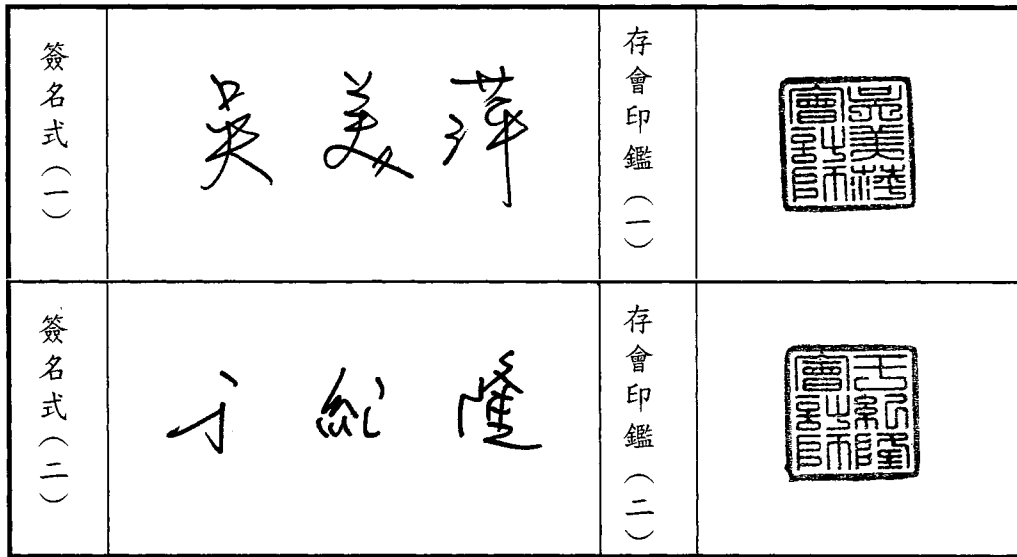 簽名式（一）
吳美萍
存會印鑑（一）
吳美萍
會計師
簽名式（二）
于紀隆
存會印鑑（二）
于紀隆
會計師